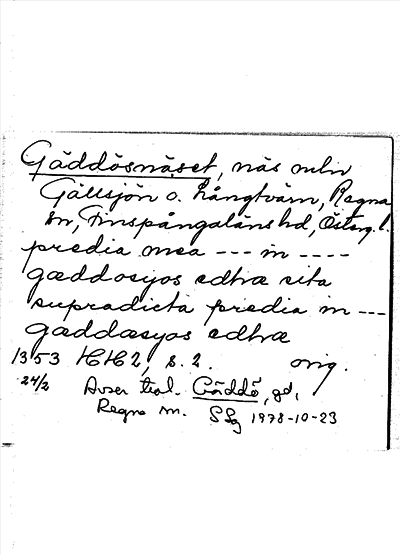 Gäddösnäset, näs mln
Gällsjön o. Långtvärn, Regna
sn, Finspångaläns hd, Österg. l.
predia mea --- in ----
gæddosyos edhæ sita
supradicta predia in ---
gæddæsyos edhæ
1353 HH 2, s. 2. orig.
24/2 Avser trol. Gäddö, gd,
Regna sn. SLg 1978-10-23